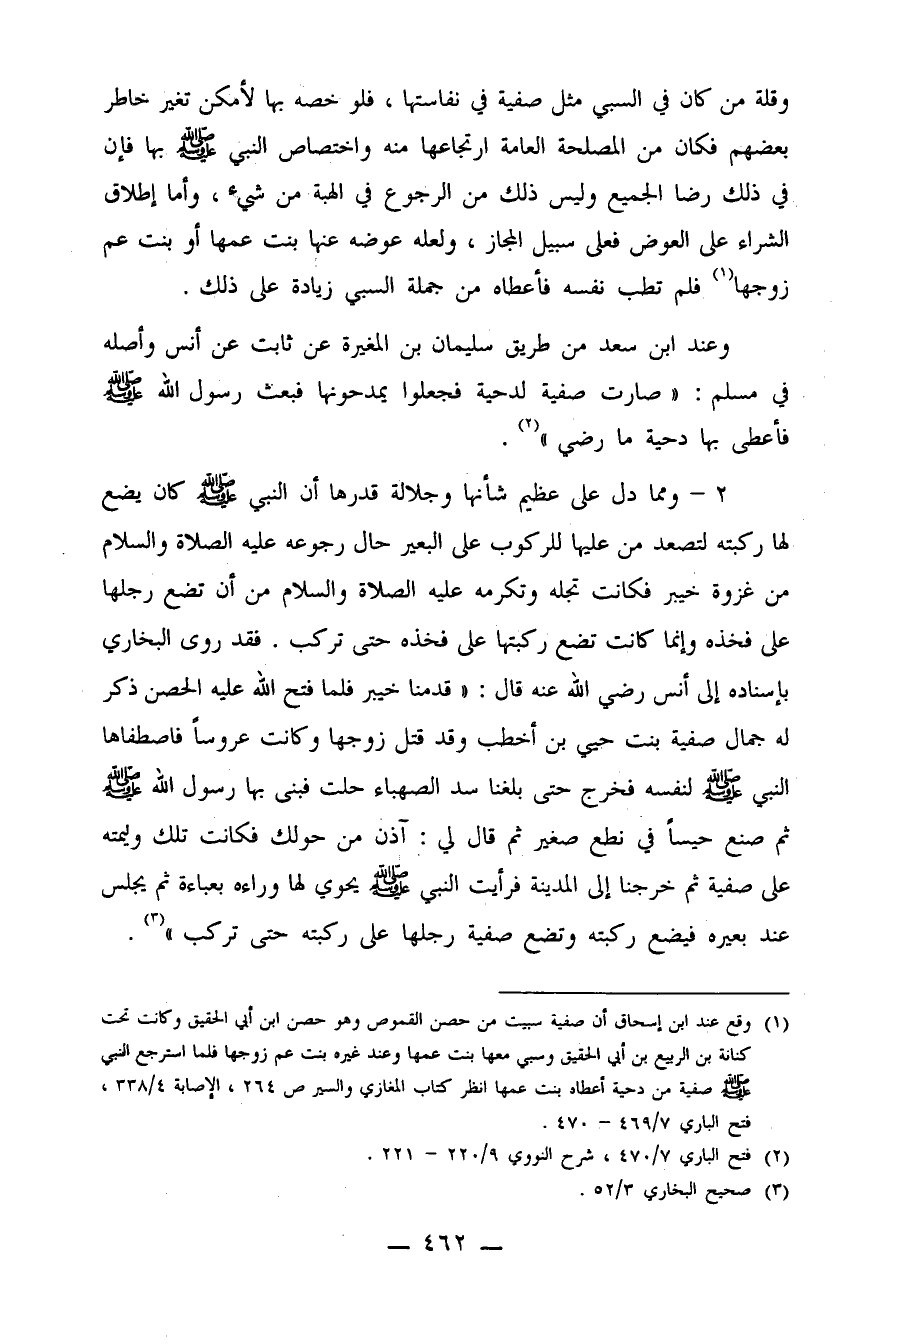 وقلة من كان في السبي مثل صفية في نفاستها ، فلو خصه بها لأمكن تغير خاطر
بعضهم فكان من المصلحة العامة ارتجاعها منه واختصاص النبي ﷺ بها فإن
في ذلك رضا الجميع وليس ذلك من الرجوع في الهبة من شيء ، وأما إطلاق
الشراء على العوض فعلى سبيل المجاز ، ولعله عوضه عنها بنت عمها أو بنت عم
زوجها(١) فلم تطب نفسه فأعطاه من جملة السبي زيادة على ذلك .
وعند ابن سعد من طريق سليمان بن المغيرة عن ثابت عن أنس وأصله
في مسلم : « صارت صفية لدحية فجعلوا يمدحونها فبعث رسول الله ﷺ
فأعطى بها دحية ما رضي »(٢) .
٢ – ومما دل على عظيم شأنها وجلالة قدرها أن النبي ﷺ كان يضع
لها ركبته لتصعد من عليها للركوب على البعير حال رجوعه عليه الصلاة والسلام
من غزوة خيبر فكانت تجله وتكرمه عليه الصلاة والسلام من أن تضع رجلها
على فخذه وإنما كانت تضع ركبتها على فخذه حتى تركب . فقد روى البخاري
بإسناده إلى أنس رضي الله عنه قال : « قدمنا خيبر فلما فتح الله عليه الحصن ذكر
له جمال صفية بنت حيي بن أخطب وقد قتل زوجها وكانت عروساً فاصطفاها
النبي ﷺ لنفسه فخرج حتى بلغنا سد الصهباء حلت فبنى بها رسول الله ﷺ
ثم صنع حيساً في نطع صغير ثم قال لي : آذن من حولك فكانت تلك وليمته
على صفية ثم خرجنا إلى المدينة فرأيت النبي ﷺ يحوي لها وراءه بعباءة ثم يجلس
عند بعيره فيضع ركبته وتضع صفية رجلها على ركبته حتى تركب »(٣) .
(١) وقع عند ابن إسحاق أن صفية سبيت من حصن القموص وهو حصن ابن أبي الحقيق وكانت تحت
كنانة بن الربيع بن أبي الحقيق وسبي معها بنت عمها وعند غيره بنت عم زوجها فلما استرجع النبي
ﷺ صفية من دحية أعطاه بنت عمها انظر كتاب المغازي والسير ص ٢٦٤ ، الإصابة ٣٣٨/٤ ،
فتح الباري ٤٦٩/٧ – ٤٧٠ .
(٢) فتح الباري ٤٧٠/٧ ، شرح النووي ٢٢٠/٩ – ٢٢١ .
(٣) صحيح البخاري ٥٢/٣ .
— ٤٦٢ —